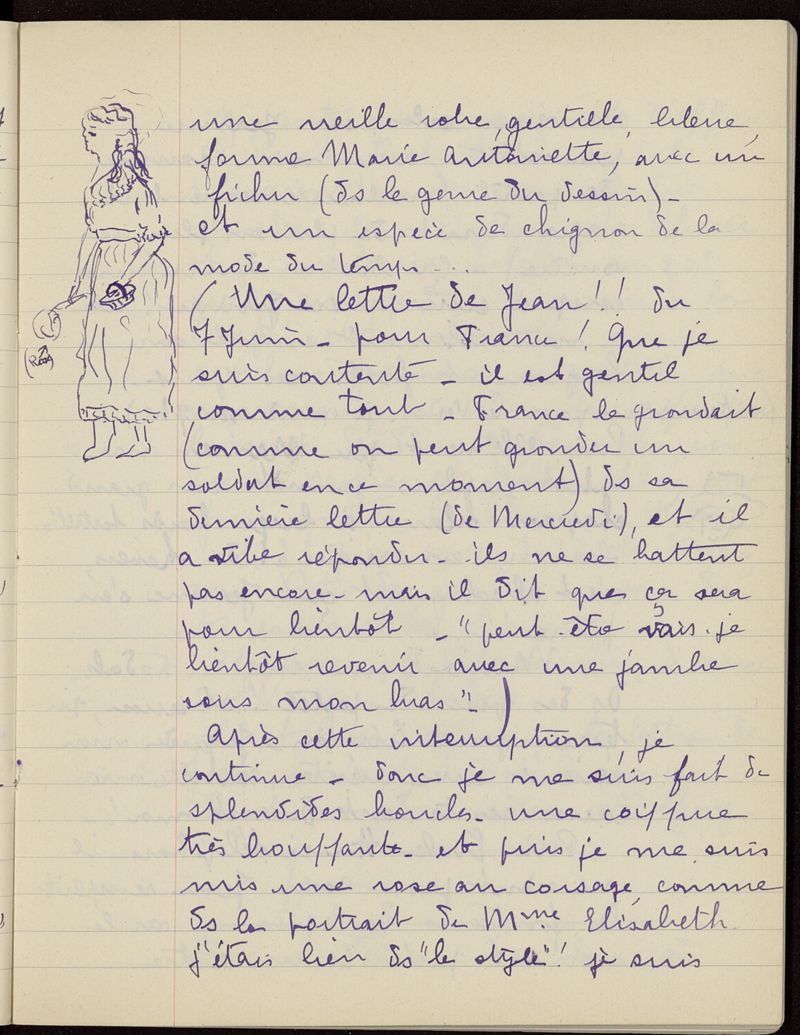 une vieille robe, gentille, bleue,
forme Marie Antoinette, avec un
fichu (ds le genre du dessin)-
et un espèce de chignon de la
mode du temps...
(Une lettre de Jean!! du
7 Juin - pour France! Que je
suis contente - il est gentil
comme tout - France le grondait
(comme on peut gronder un
soldat en ce moment) ds sa
dernière lettre (de Mercredi), et il
a vite répondu - ils ne se battent
pas encore - mais il dit que ça sera
pour bientôt - "peut-être vais-je
bientôt revenir avec une jambe
sous mon bras"-)
Après cette interruption, je
continue - donc je me suis fait de
splendides boucles - une coiffure
très bouffante - et puis je me suis
mis une rose au corsage, comme
ds le portrait de Mme Elisabeth
j'étais bien ds "le style"! je suis